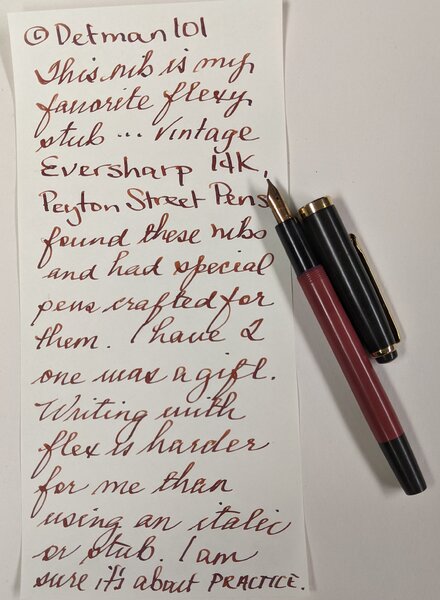 © Detman 101
This nib is my
favorite flexy
stub ... Vintage
Eversharp 14K,
Peyton Street Pens
found these nibs
and had special
pens crafted for
them. I have 2
one was a gift.
Writing with
flex is harder
for me than
using an italic
or stub. I am
sure it's about PRACTICE.